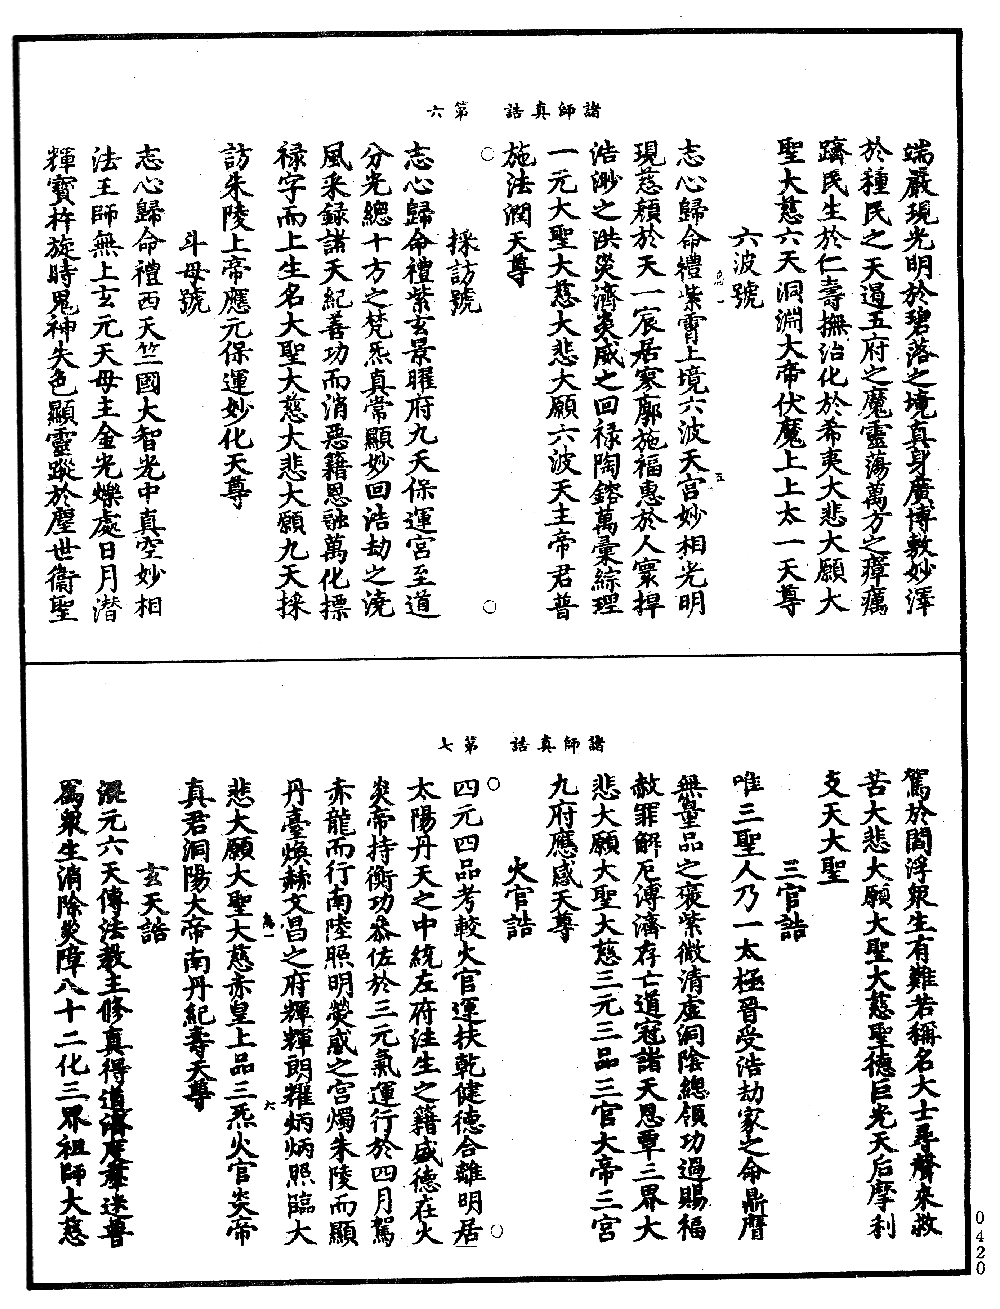 諸師真誥 第六
端嚴現光明於碧落之境真身廣博敷妙澤
於種民之天遏五府之魔靈蕩萬方之瘴癘
躋民生於仁壽撫治化於希夷大悲大願大
聖大慈六天洞淵大帝伏魔上上太一天尊
六波號
志心歸命禮紫霄上境六波天宮妙相光明
現慈顏於天一宸居寥廓施福惠於人寰捍
浩渺之洪災濟炎威之回祿陶鎔萬彙綜理
一元大聖大慈大悲大願六波天主帝君普
施法潤天尊
採訪號
志心歸命禮紫玄景曜府九天保運宮至道
分光總十方之梵炁真常顯妙回浩劫之澆
風采録諸天紀善功而消惡籍恩融萬化摽
祿字而上生名大聖大慈大悲大願九天採
訪朱陵上帝應元保運妙化天尊
斗母號
志心歸命禮西天竺國大智光中真空妙相
法王師無上玄元天母主金光爍處日月潛
輝寶杵旋時鬼神失色顯靈蹤於塵世衞聖
諸師真誥 第七
駕於閻浮眾生有難若稱名大士尋聲來救
苦大悲大願大聖大慈聖德巨光天后摩利
支天大聖
三官誥
唯三聖人乃一太極晉受浩劫家之命鼎膺
無量品之褒紫微清虛洞陰總領功過賜福
赦罪解厄溥濟存亡道冠諸天恩覃三界大
悲大願大聖大慈三元三品三官大帝三宮
九府應感天尊
火官誥
四元四品考較火官運扶乾健德合離明居
太陽丹天之中統左府注生之籍盛德在火
炎帝持衡功叅佐於三元氣運行於四月駕
赤龍而行南陸照明熒惑之宮燭朱陵而顯
丹臺煥赫文昌之府輝輝朗耀炳炳照臨大
悲大願大聖大慈赤皇上品三炁火官炎帝
真君洞陽大帝南丹紀壽天尊
玄天誥
混元六天傳法教主修真得道濟度羣迷普
爲眾生消除災障八十二化三界祖師大慈
0420